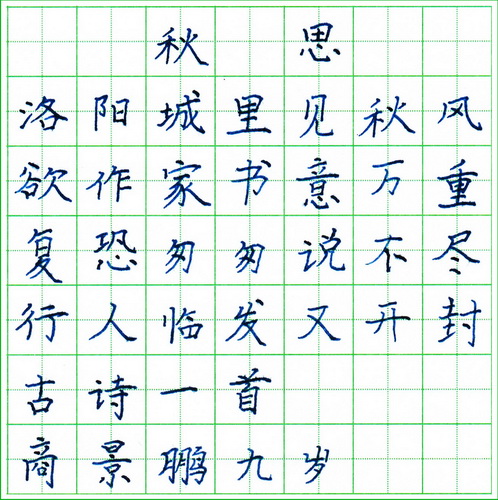 秋思
洛阳城里见秋风
欲作家书意万重
复恐匆匆说不尽
行人临发又开封
古诗一首
商景鹏九岁